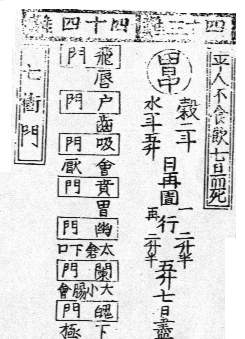 四十三難
平人不食飲七日而死
胃中
穀二斗
水斗五升
日再圊
一行二升半
再二升半
五升七日盡
四十四難
飛門
唇
戶門
齒
吸門
會厭
賁門
胃
幽門
太倉下口
闌門
大小腸會
魄門
下極
七衝門